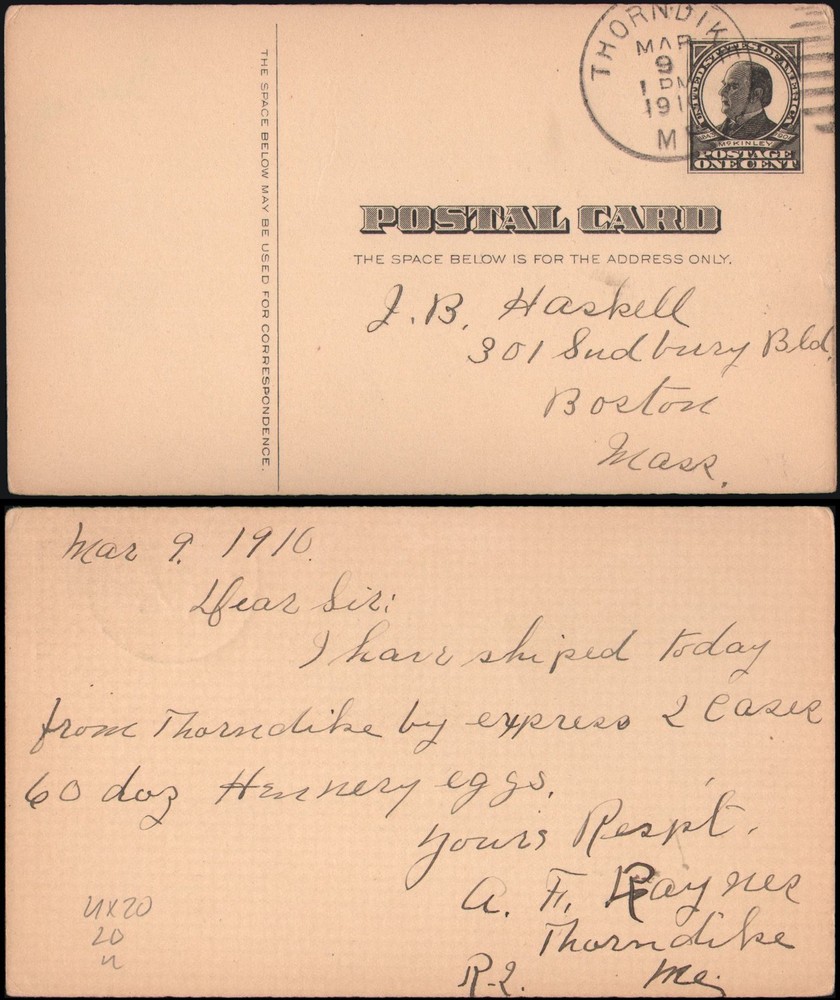 THORNDIKE
MAR
9
1 PM
191
ME
UNITED STATES OF AMERICA
McKINLEY
POSTAGE
ONE CENT
POSTAL CARD
THE SPACE BELOW IS FOR THE ADDRESS ONLY.
THE SPACE BELOW MAY BE USED FOR CORRESPONDENCE.
J. B. Haskell
301 Sudbury Bld.
Boston
Mass.
Mar 9. 1910.
Dear Sir:
I have shiped today
from Thorndike by express 2 Cases
60 doz Hennery eggs.
Yours Respt.
A. F. Raynes
Thorndike
R-2. Me.
UX20
20
u